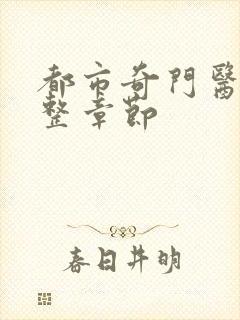 都市奇門醫
整章節
春日井明